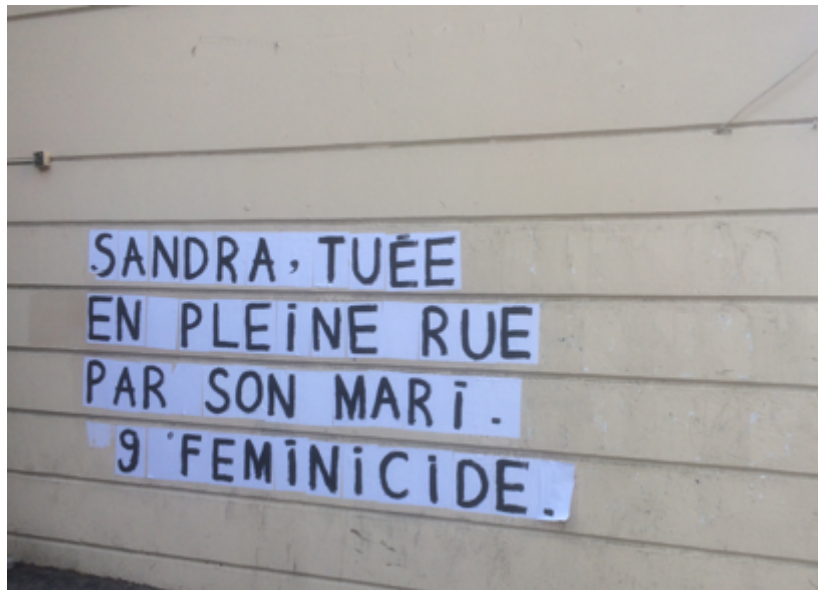 SANDRA, TUÉE
EN PLEINE RUE
PAR SON MARI.
9° FEMINICIDE.